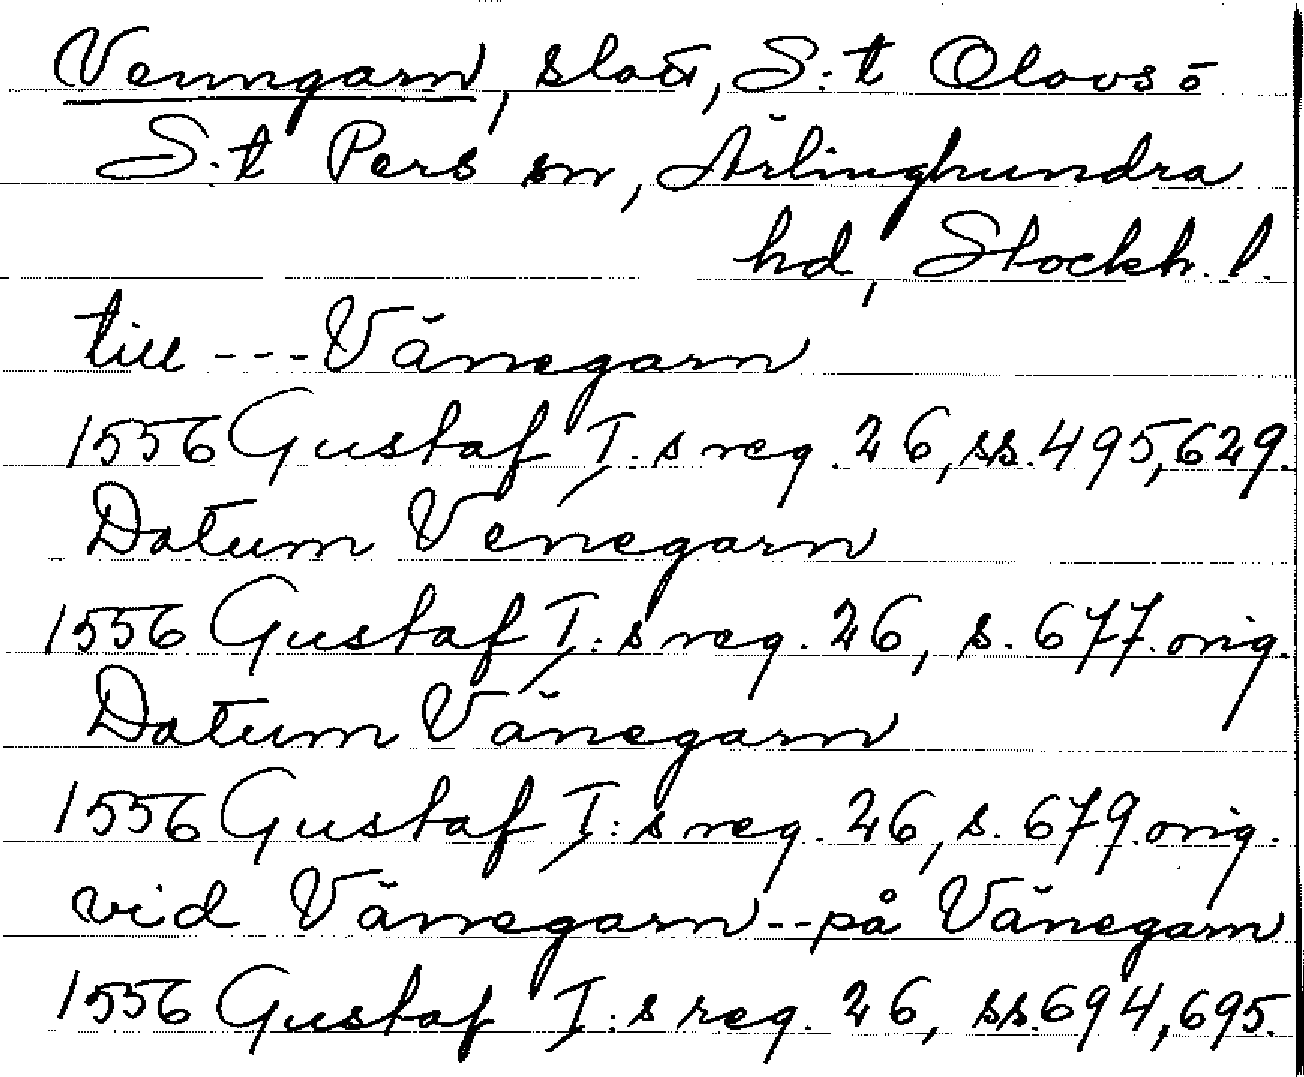 Venngarn, slott, S:t Olovs ö
S:t Pers sn, Ärlinghundra
hd, Stockh. l.
till --- Vänegarn
1556 Gustaf I:s reg. 26, ss. 495, 629.
Datum Venegarn
1556 Gustaf I:s reg. 26, s. 677. orig.
Datum Vänegarn
1556 Gustaf I:s reg. 26, s. 679. orig.
vid Vänegarn -- på Vänegarn
1556 Gustaf I:s reg. 26, ss. 694, 695.